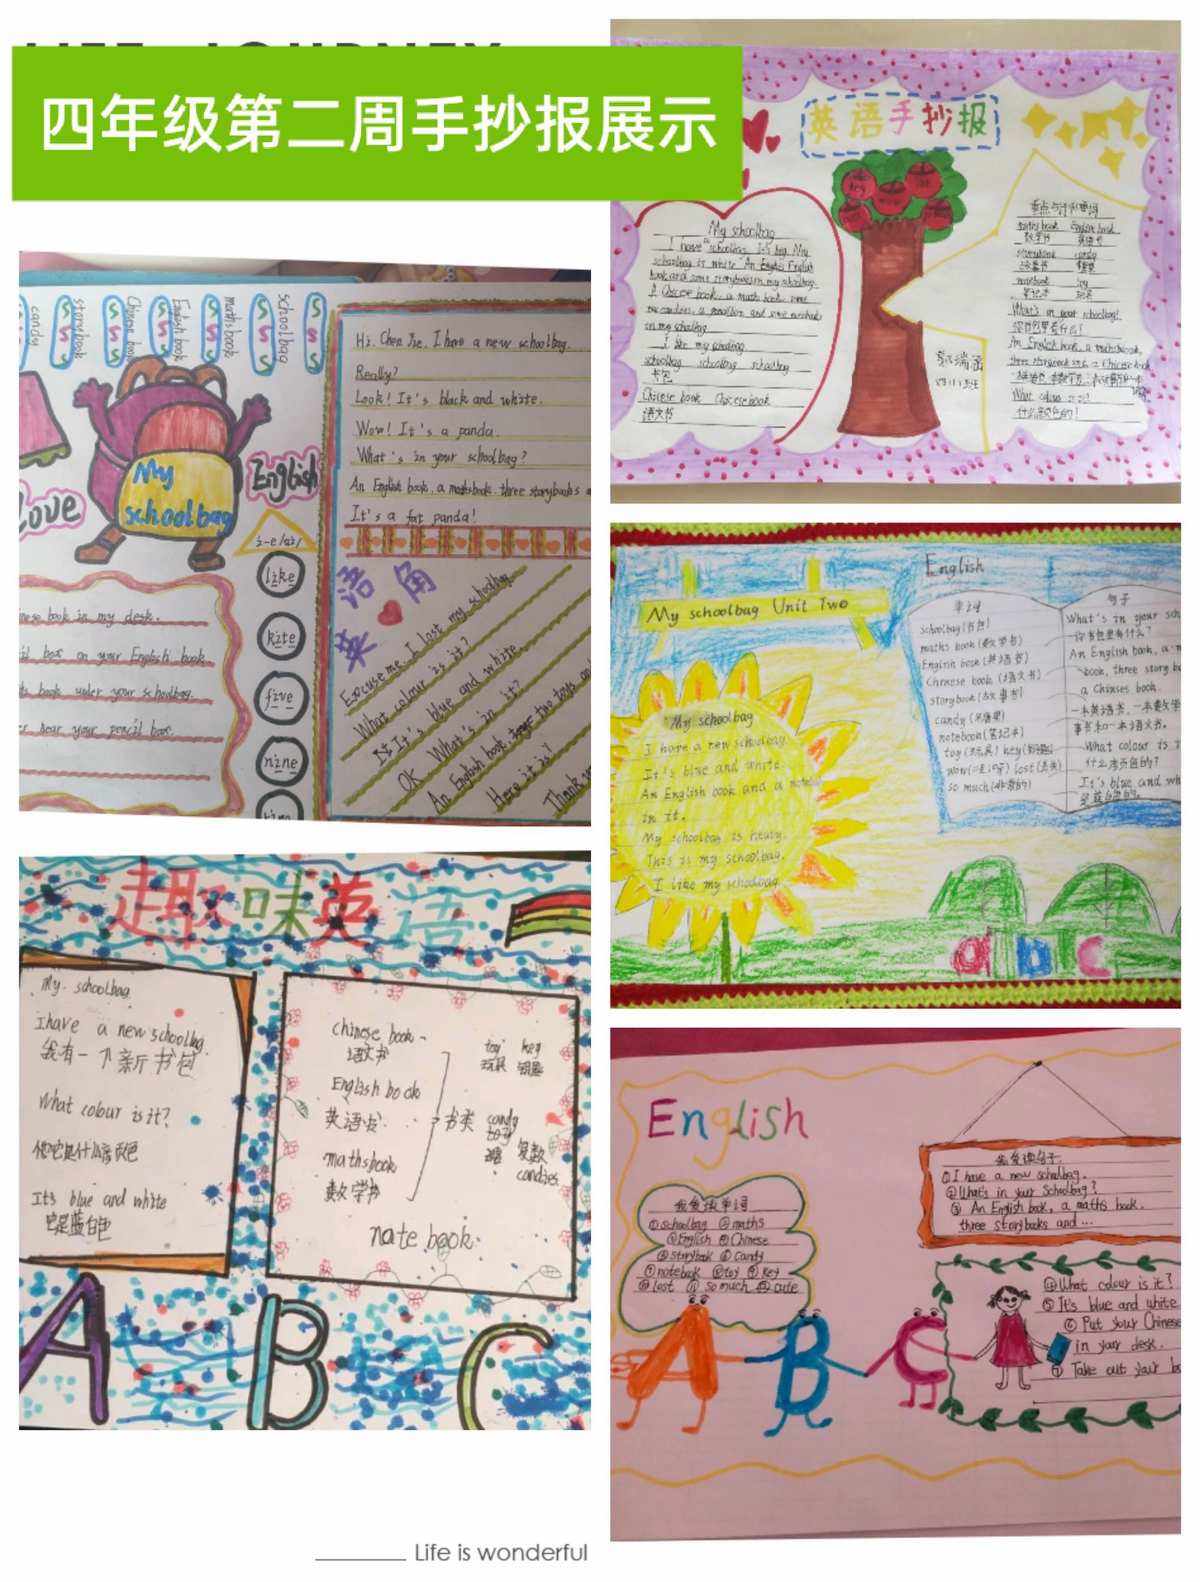 LIFE JOURNEY
四年级第二周手抄报展示
英语手抄报
My schoolbag
I have a schoolbag. It's big. My
schoolbag is white. An English English
book and some storybooks in my schoolbag.
in my schoolbag.
I like my schoolbag.
schoolbag schoolbag schoolbag
书包
Chinese book Chinese book
语文书
English book
数学书 英语书
storybook candy
故事书 糖果
notebook toy
笔记本 玩具
What's in your schoolbag?
你书包里有什么?
An English book, a maths book,
three storybooks, a Chinese book
What colour is it?
什么颜色的?
candy
storybook
Chinese book
English book
maths book
schoolbag
My
schoolbag
Love
English
i-e /aɪ/
like
kite
five
nine
Hi, Chen Jie. I have a new schoolbag.
Really?
Look! It's black and white.
Wow! It's a panda.
What's in your schoolbag?
An English book, a maths book, three storybooks a
It's a fat panda!
英语角
Excuse me. I lost my schoolbag.
What colour is it?
It It's blue and white.
OK. What's in it?
An English book, two toys an
Here it is?
Thank
nese book in my desk.
il box on your English book.
book under your schoolbag.
near your pencil box.
English
My schoolbag Unit Two
单词
schoolbag(书包)
maths book(数学书)
English book(英语书)
Chinese book(语文书)
storybook(故事书)
candy(糖果)
notebook(笔记本)
toy(玩具) key(钥匙)
wow() lost(丢失)
so much(非常的)
句子
What's in your sch
你书包里有什么?
An English book, a m
book, three story b
a Chinses book.
一本英语书,一本数学
事书和一本语文书。
What colour is i
什么颜色的?
It's blue and wh
是蓝白色的。
My schoolbag
I have a new schoolbag.
It's blue and white.
An English book and a noteb
in it.
My schoolbag is heavy.
This is my schoolbag.
I like my schoolbag.
a b c
趣味英语
My schoolbag
I have a new schoolbag.
我有一个新书包
What colour is it?
It's blue and white
它是蓝白色
chinese book
语文书
English book
英语书
mathsbook
数学书
书类
toy key
玩具 钥匙
candy
toy
糖
复数
candies
note book
A B C
English
我爱读单词
①schoolbag ②maths
③English ④Chinese
⑤storybook ⑥candy
⑦notebook ⑧toy ⑨key
⑩lost ⑪so much ⑫cute
我爱读句子
①I have a new schoolbag.
②What's in your Schoolbag?
③An English book, a maths book,
three storybooks and...
④What colour is it?
⑤It's blue and white
⑥Put your Chinese
in your desk.
⑦Take out your b
A B C
Life is wonderful